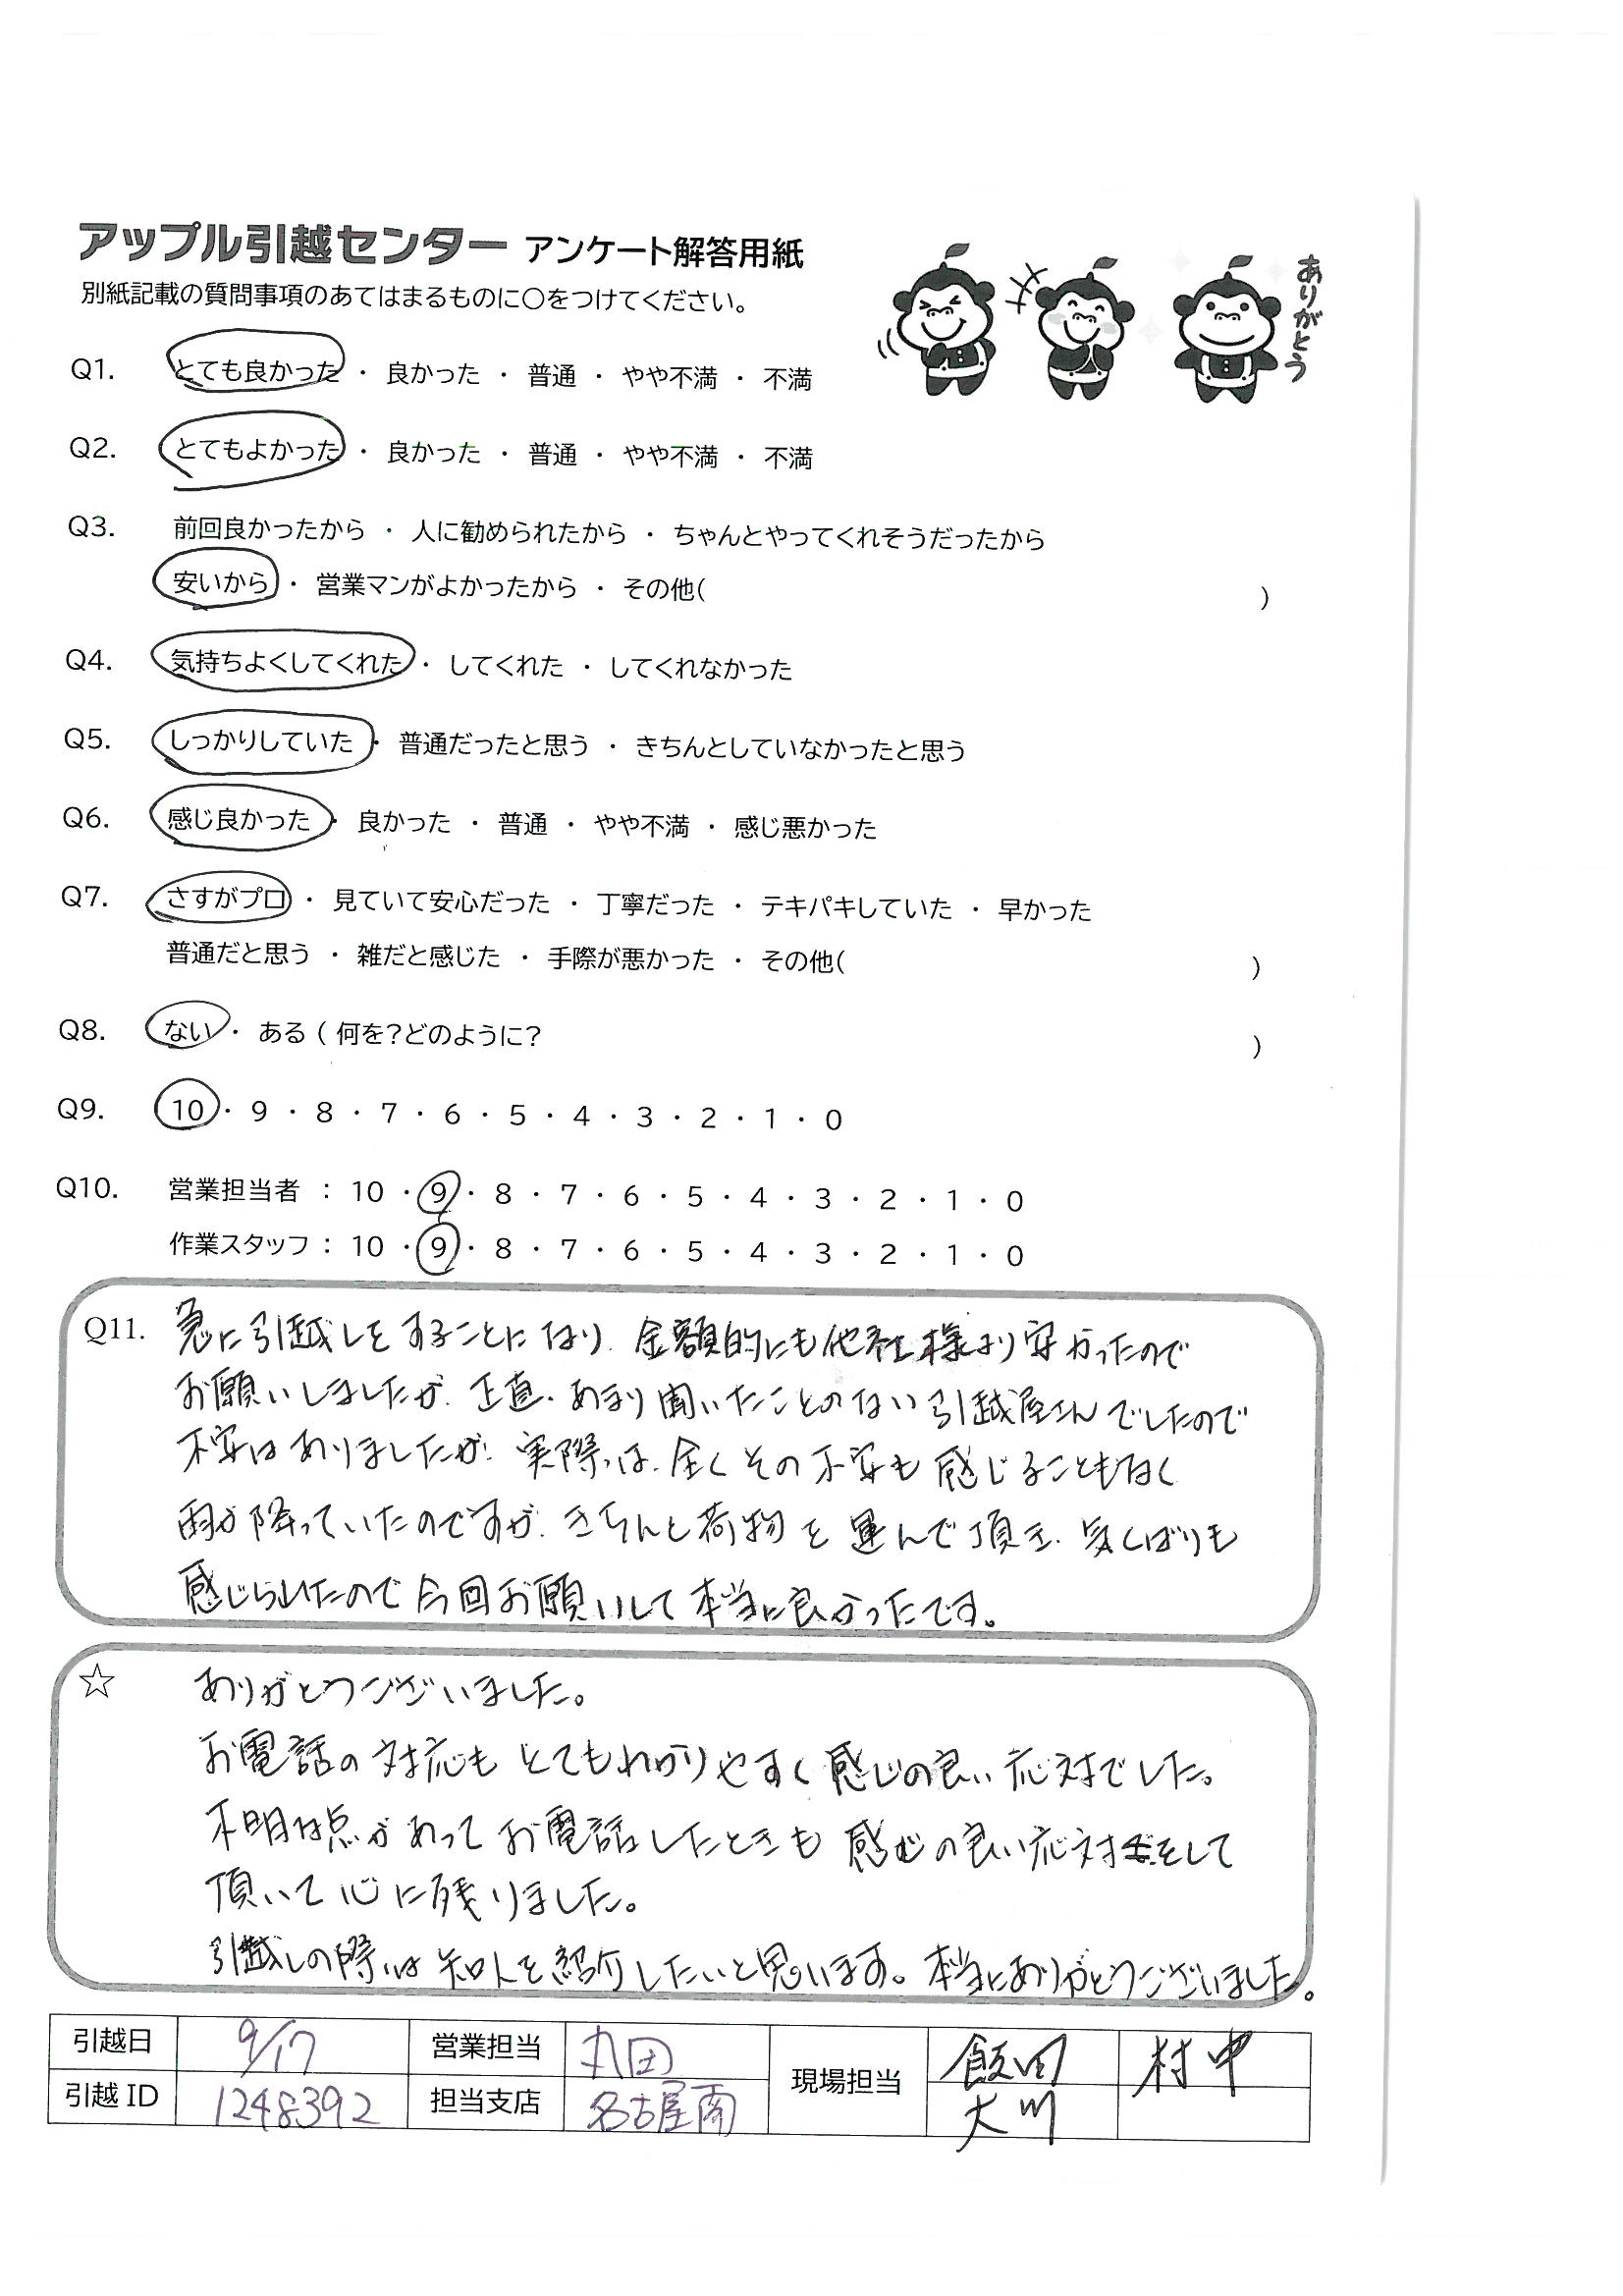 アップル引越センター アンケート解答用紙
別紙記載の質問事項のあてはまるものに○をつけてください。
ありがとう
Q1. とても良かった ・ 良かった ・ 普通 ・ やや不満 ・ 不満
Q2. とてもよかった ・ 良かった ・ 普通 ・ やや不満 ・ 不満
Q3. 前回良かったから ・ 人に勧められたから ・ ちゃんとやってくれそうだったから
安いから ・ 営業マンがよかったから ・ その他( )
Q4. 気持ちよくしてくれた ・ してくれた ・ してくれなかった
Q5. しっかりしていた ・ 普通だったと思う ・ きちんとしていなかったと思う
Q6. 感じ良かった ・ 良かった ・ 普通 ・ やや不満 ・ 感じ悪かった
Q7. さすがプロ ・ 見ていて安心だった ・ 丁寧だった ・ テキパキしていた ・ 早かった
普通だと思う ・ 雑だと感じた ・ 手際が悪かった ・ その他( )
Q8. ない ・ ある ( 何を?どのように? )
Q9. 10 ・ 9 ・ 8 ・ 7 ・ 6 ・ 5 ・ 4 ・ 3 ・ 2 ・ 1 ・ 0
Q10. 営業担当者 : 10 ・ 9 ・ 8 ・ 7 ・ 6 ・ 5 ・ 4 ・ 3 ・ 2 ・ 1 ・ 0
作業スタッフ : 10 ・ 9 ・ 8 ・ 7 ・ 6 ・ 5 ・ 4 ・ 3 ・ 2 ・ 1 ・ 0
Q11. 急に引越しをすることになり、金額的にも他社様より安かったので
お願いしましたが、正直、あまり聞いたことのない引越屋さんでしたので
不安はありましたが、実際は、全くその不安も感じることもなく
雨が降っていたのですが、きちんと荷物を運んで頂き、気くばりも
感じられたので今回お願いして本当に良かったです。
☆ ありがとうございました。
お電話の対応もとてもわかりやすく感じの良い応対でした。
不明な点があってお電話したときも感じの良い応対をして
頂いて心に残りました。
引越しの際は知人を紹介したいと思います。本当にありがとうございました。
引越日 9/17 営業担当 丸田 現場担当 飯田 村中
引越ID 1248392 担当支店 名古屋南 大川